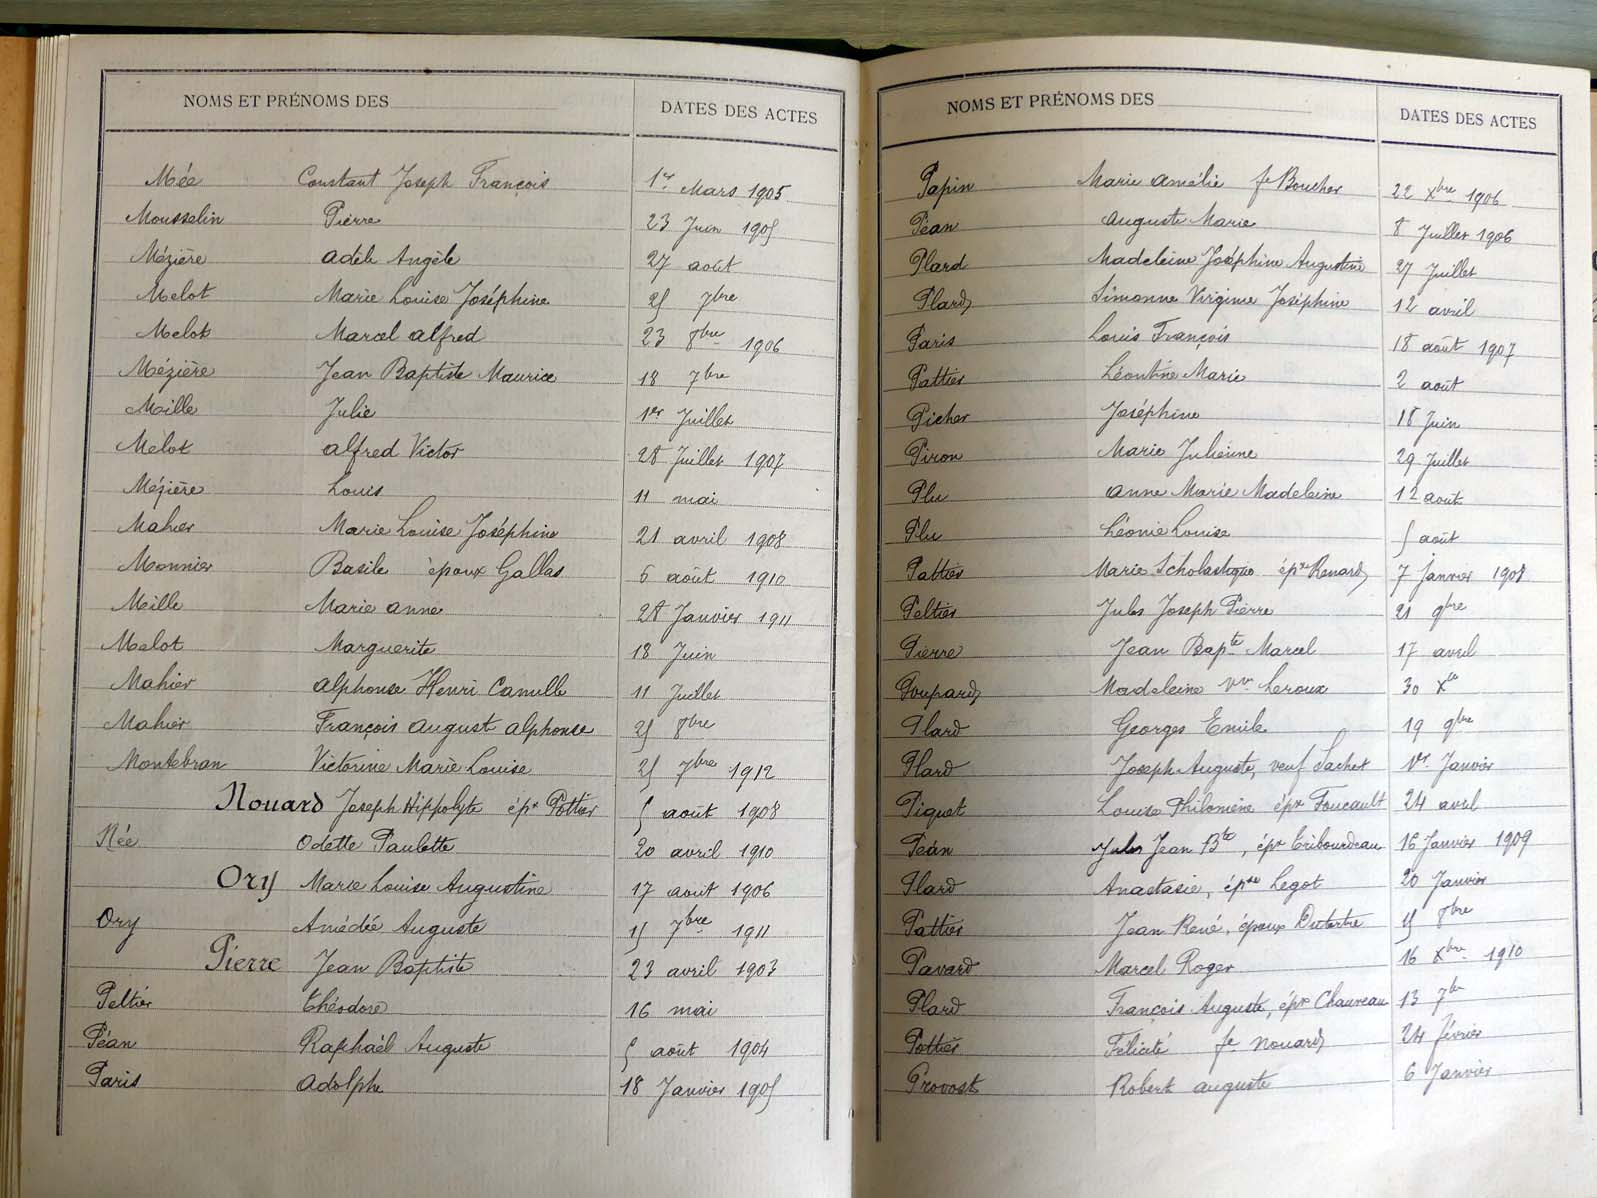 NOMS ET PRÉNOMS DES DATES DES ACTES
Mée Constant Joseph François 1er Mars 1905
Mousselin Pierre 23 Juin 1905
Mézière Adèle Angèle 27 août
Melot Marie Louise Joséphine 25 7bre
Melot Marcel Alfred 23 8bre 1906
Mézière Jean Baptiste Maurice 18 7bre
Meille Julie 1er Juillet
Melot Alfred Victor 28 Juillet 1907
Mézière Louis 11 mai
Mahier Marie Louise Joséphine 21 avril 1908
Monnier Basile époux Gallas 6 août 1910
Meille Marie Anne 28 Janvier 1911
Melot Marguerite 18 Juin
Mahier Alphonse Henri Camille 11 Juillet
Mahier François August Alphonse 25 8bre
Montebran Victorine Marie Louise 25 7bre 1912
Nouard Joseph Hippolyte épx Pottier 5 août 1908
Née Odette Paulette 20 avril 1910
Ory Marie Louise Augustine 17 août 1906
Ory Amédée Auguste 15 7bre 1911
Pierre Jean Baptiste 23 avril 1903
Peltier Théodore 16 mai
Péan Raphaël Auguste 5 août 1904
Paris Adolphe 18 Janvier 1905
NOMS ET PRÉNOMS DES DATES DES ACTES
Papin Marie Amélie fe Boucher 22 Xbre 1906
Péan Auguste Marie 8 Juillet 1906
Plard Madeleine Joséphine Augustine 27 Juillet
Plard Simonne Virginie Joséphine 12 avril
Paris Louis François 18 août 1907
Pattier Léontine Marie 2 août
Picher Joséphine 18 Juin
Piron Marie Julienne 29 Juillet
Plu Anne Marie Madeleine 12 août
Plu Léonie Louise 5 août
Pattier Marie Scholastique épse Renard 7 Janvier 1908
Peltier Jules Joseph Pierre 21 9bre
Pierre Jean Bapte Marcel 17 avril
Poupard Madeleine vve Leroux 30 Xbre
Plard Georges Emile 19 9bre
Plard Joseph Auguste, veuf Sachet 1er Janvier
Piquet Louise Philomène épx Foucault 24 avril
Péan Jules Jean Bte, épx Tribourdeau 16 Janvier 1909
Plard Anastasie, épse Legot 20 Janvier
Pattier Jean René, époux Dutertre 15 8bre
Pavard Marcel Roger 16 Xbre 1910
Plard François Auguste, épx Chauveau 13 7bre
Pottier Félicité fe Nouard 24 février
Provost Robert Auguste 6 Janvier